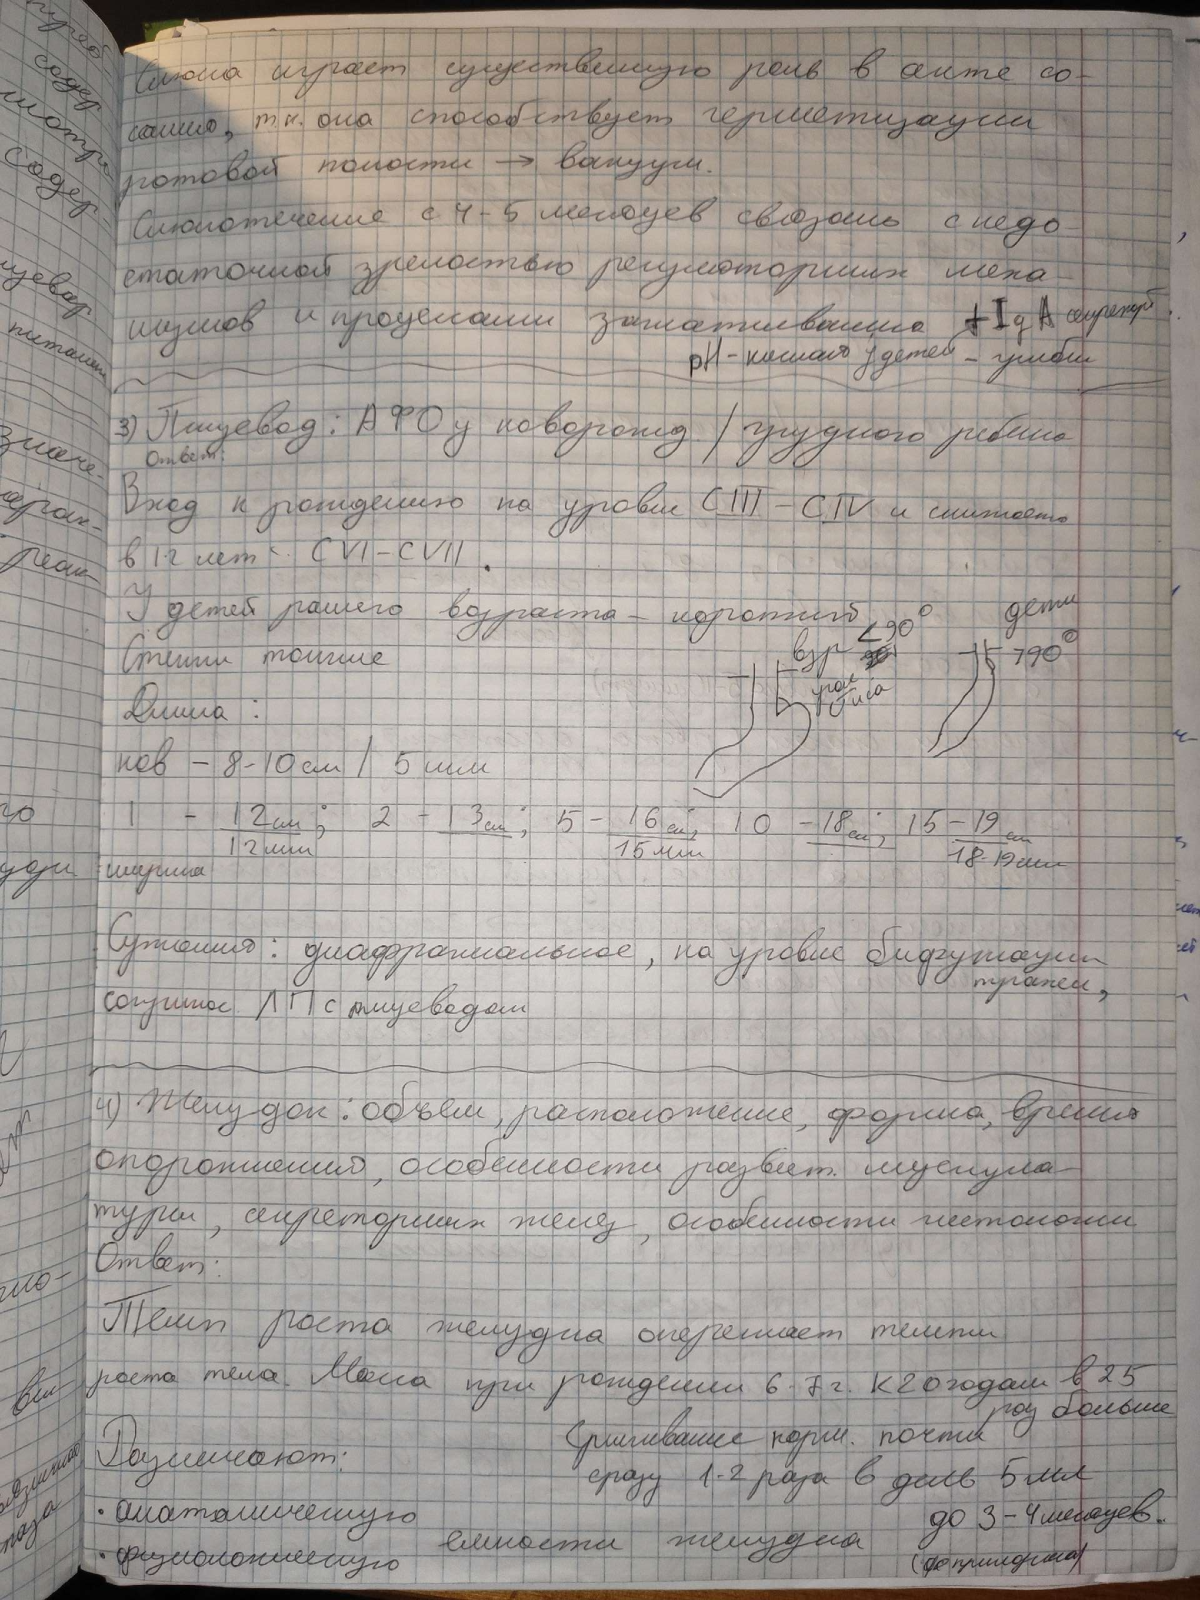 Слюна играет существенную роль в акте со-
сания, т.к. она способствует герметизации
ротовой полости → вакуум.
Слюнотечение с 4-5 месяцев связано с недо-
статочной зрелостью регуляторных меха
низмов и процессами заглатывания + Ig A секреторн.
pH - кислая у детей - грибы
3) Пищевод: АФО у новорожд / грудного ребенка
Ответ:
Вход к рождению на уровне CIII - CIV и снижается
в 12 лет - CVI - CVII.
У детей раннего возраста - короткий
взр <90° дети
>90°
Стенки тонкие
угол Гиса
Длина:
нов - 8-10 см / 5 мм
1 - 12 см; 2 - 13 см; 5 - 16 см; 10 - 18 см; 15 - 19 см
12 мм 15 мм 18-19 мм
ширина
Сужения: диафрагмальное, на уровне бифукации
трахеи,
соприкос ЛП с пищеводом
4) Желудок: объем, расположение, форма, время
опорожнения, особенности развит. мускула-
туры, секреторных желез, особенности гистологии
Ответ:
Темп роста желудка опережает темпы
роста тела. Масса при рождении 6-7 г. К 20 годам в 25
раз больше
Различают:
Срыгивание норм. почти
сразу 1-2 раза в день 5 мл
до 3-4 месяцев.
• анатомическую
• физиологическую
емкости желудка
(до прикорма)
пищевар
питания
значе-
реак-